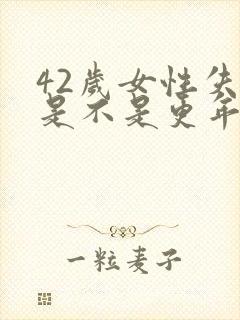 42歲女性失
是不是更年
一粒麦子